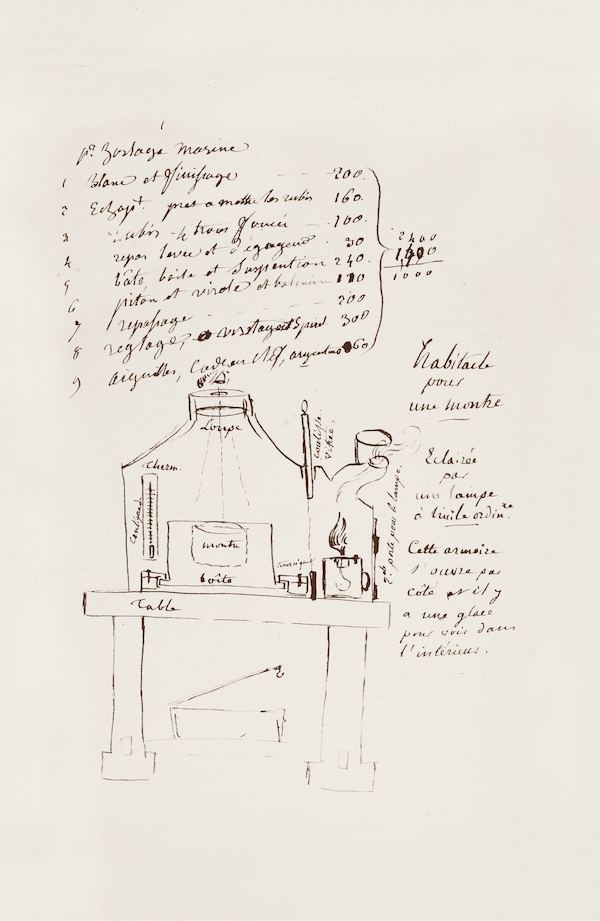 pr. horloge marine
1 blanc et finissage 200.
2 Echapt. pret a mettre les rubis 160.
3 Rubis 4 trous foncés 100.
4 repos levée et Degagemt 30
5 bâte boîte et Suspention 240.
6 piton et virole et balancier
7 repassage 200
8 reglage, et Spiral 300
9 aiguilles, Cadran Clef, argenture 60
2400
1400
1000
habitacle
pour
une montre
Loupe
coulisse
vitrée.
Therm.
centigrade
montre
boîte
2de porte pour la lampe.
Table
Eclairée
par
une lampe
à huile ordinre.
Cette armoire
s'ouvre par
côté et il y
a une glace
pour voir dans
l'intérieur.